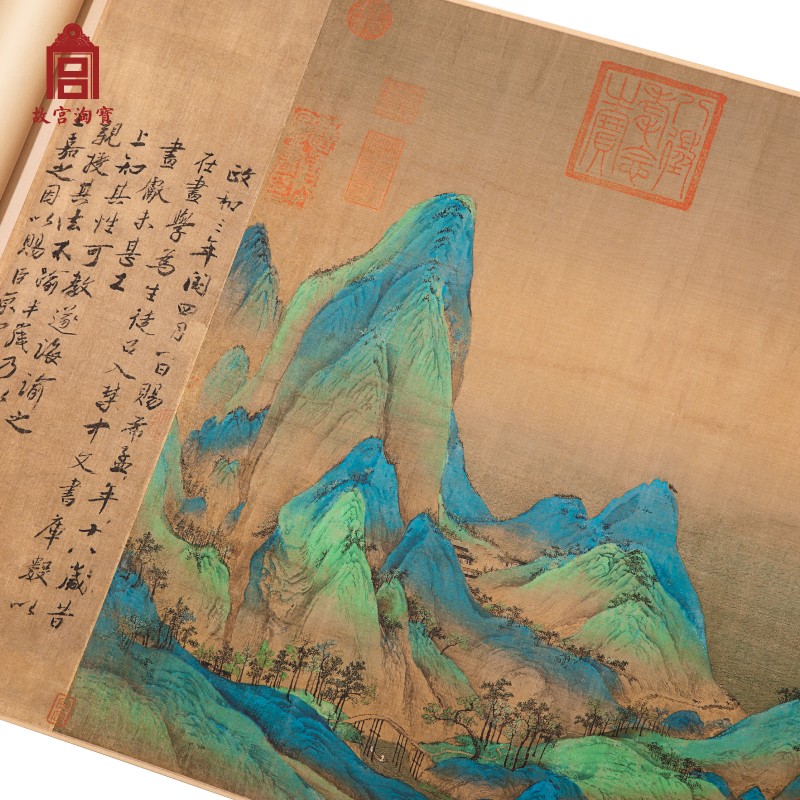 故宮淘寶
八徵耄念之寶
政和三年閏四月一日賜希孟年十八歲昔
在畫學為生徒召入禁中文書庫數以
畫獻未甚工
上知其性可教遂誨諭之
親授其法不踰半歲乃以
上嘉之因以賜臣京